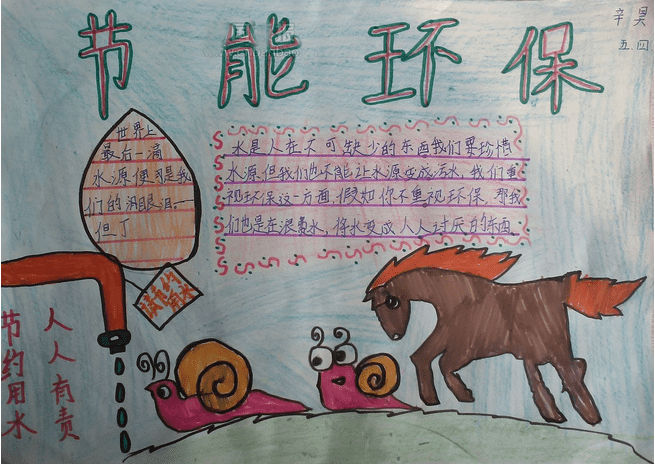 节能环保
辛昊
五.四
世界上
最后一滴
水源便即是我
们的泪眼泪.
但丁
水是人在不可缺少的东西我们要珍惜
水源但我们也不能让水源变成污水,我们重
视环保这一方面假如你不重视环保那我
们也是在浪费水,将水变成人人讨厌的东西
节约用水
人人有责